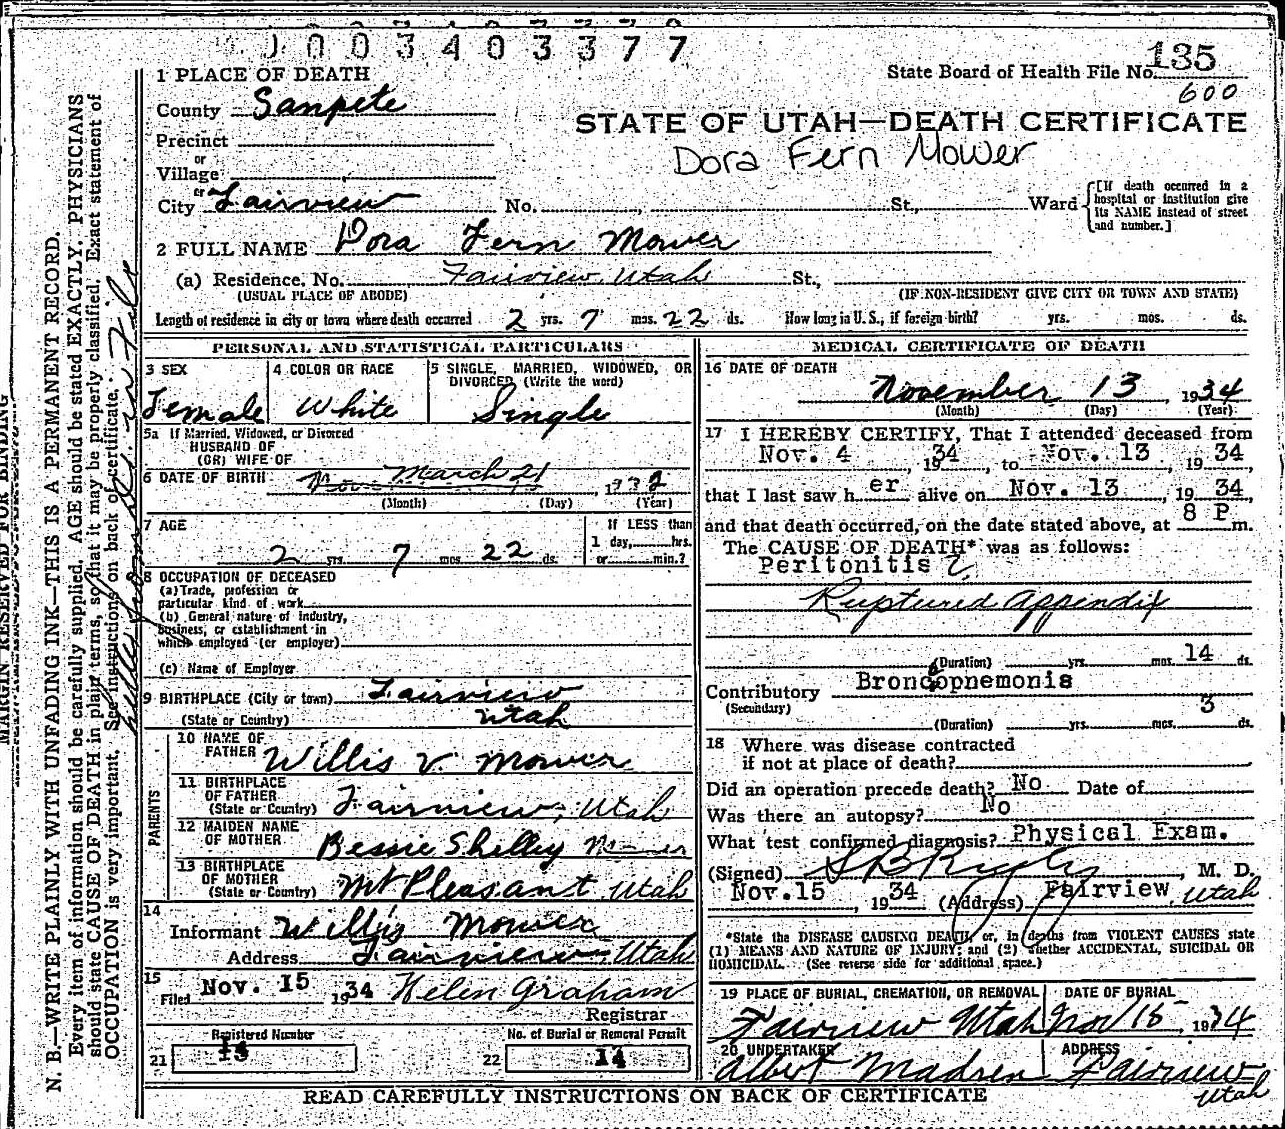 1003403377
State Board of Health File No. 135
600
STATE OF UTAH—DEATH CERTIFICATE
Dora Fern Mower
1 PLACE OF DEATH
County Sanpete
Precinct
or
Village
or
City Fairview No. St., Ward
[If death occurred in a
hospital or institution give
its NAME instead of street
and number.]
2 FULL NAME Dora Fern Mower
(a) Residence. No. Fairview, Utah St.,
(USUAL PLACE OF ABODE) (IF NON-RESIDENT GIVE CITY OR TOWN AND STATE)
Length of residence in city or town where death occurred 2 yrs. 7 mos. 22 ds. How long in U. S., if foreign birth? yrs. mos. ds.
PERSONAL AND STATISTICAL PARTICULARS
3 SEX
Female
4 COLOR OR RACE
White
5 SINGLE, MARRIED, WIDOWED, OR
DIVORCED (Write the word)
Single
5a If Married, Widowed, or Divorced
HUSBAND OF
(OR) WIFE OF
6 DATE OF BIRTH March 21, 1932
(Month) (Day) (Year)
7 AGE
2 yrs. 7 mos. 22 ds.
If LESS than
1 day, hrs.
or min.?
8 OCCUPATION OF DECEASED
(a) Trade, profession or
particular kind of work
(b) General nature of industry,
business, or establishment in
which employed (or employer)
(c) Name of Employer
9 BIRTHPLACE (City or town) Fairview
(State or Country) Utah
PARENTS
10 NAME OF
FATHER Willis V. Mower
11 BIRTHPLACE
OF FATHER
(State or Country) Fairview, Utah
12 MAIDEN NAME
OF MOTHER Bessie Shelley Mower
13 BIRTHPLACE
OF MOTHER
(State or Country) Mt Pleasant Utah
14
Informant Willis Mower
Address Fairview Utah
15
Filed Nov. 15 1934 Helen Graham
Registrar
Registered Number
21
No. of Burial or Removal Permit
22 14
MEDICAL CERTIFICATE OF DEATH
16 DATE OF DEATH
November 13, 1934
(Month) (Day) (Year)
17 I HEREBY CERTIFY, That I attended deceased from
Nov. 4, 1934, to Nov. 13 1934
that I last saw her alive on Nov. 13, 1934,
and that death occurred, on the date stated above, at 8 P m.
The CAUSE OF DEATH* was as follows:
Peritonitis
Ruptured Appendix
(Duration) yrs. mos. 14 ds.
Contributory Broncopnemonia
(Secondary)
(Duration) yrs. mos. 3 ds.
18 Where was disease contracted
if not at place of death?
Did an operation precede death? No Date of
Was there an autopsy? No
What test confirmed diagnosis? Physical Exam.
(Signed) , M. D.
Nov.15, 1934 (Address) Fairview, Utah
*State the DISEASE CAUSING DEATH, or, in deaths from VIOLENT CAUSES state
(1) MEANS AND NATURE OF INJURY; and (2) whether ACCIDENTAL, SUICIDAL OR
HOMICIDAL. (See reverse side for additional space.)
19 PLACE OF BURIAL, CREMATION, OR REMOVAL
Fairview Utah
DATE OF BURIAL
Nov 15, 1934
20 UNDERTAKER
Albert Madsen
ADDRESS
Fairview
Utah
READ CAREFULLY INSTRUCTIONS ON BACK OF CERTIFICATE
MARGIN RESERVED FOR BINDING
N. B.—WRITE PLAINLY WITH UNFADING INK—THIS IS A PERMANENT RECORD.
Every item of information should be carefully supplied. AGE should be stated EXACTLY. PHYSICIANS
should state CAUSE OF DEATH in plain terms, so that it may be properly classified. Exact statement of
OCCUPATION is very important. See instructions on back of certificate.